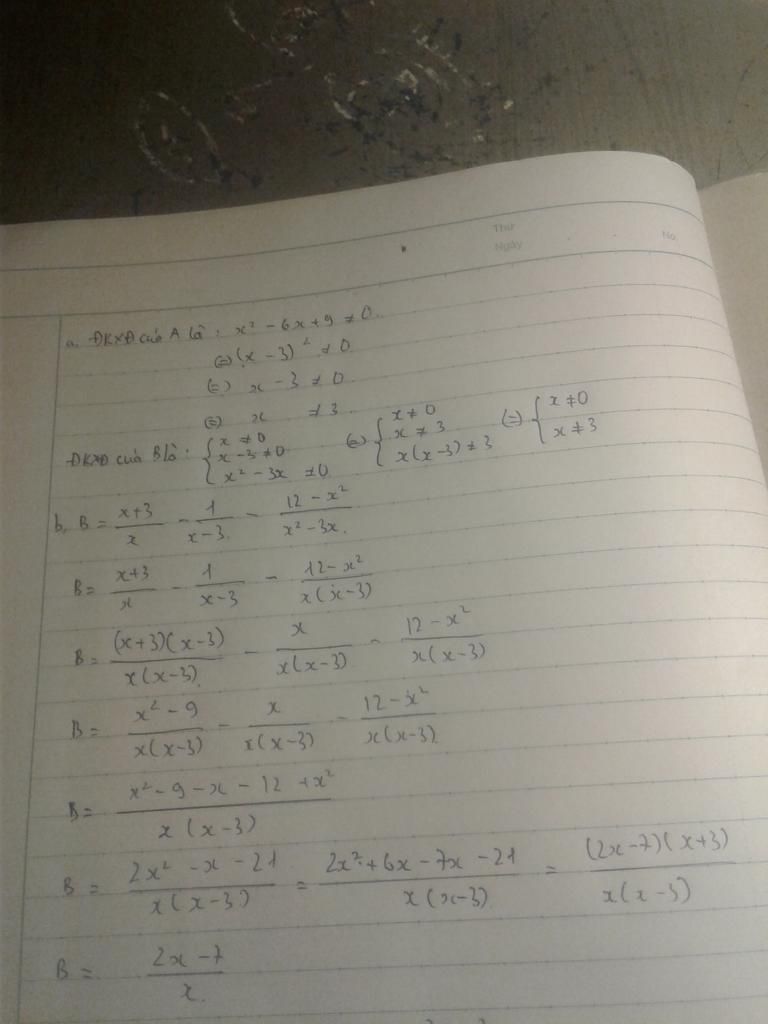 Thứ
Ngày
No.
a. ĐKXĐ của A là : x² - 6x + 9 ≠ 0.
(=) (x - 3)² ≠ 0
(=) x - 3 ≠ 0
(=) x ≠ 3
ĐKXĐ của B là : { x ≠ 0 ; x - 3 ≠ 0 ; x² - 3x ≠ 0 (=) { x ≠ 0 ; x ≠ 3 ; x(x-3) ≠ 3 (=) { x ≠ 0 ; x ≠ 3
b, B = (x+3)/x - 1/(x-3) - (12 - x²)/(x² - 3x)
B = (x+3)/x - 1/(x-3) - (12 - x²)/(x(x-3))
B = ((x+3)(x-3))/(x(x-3)) - x/(x(x-3)) - (12 - x²)/(x(x-3))
B = (x² - 9)/(x(x-3)) - x/(x(x-3)) - (12 - x²)/(x(x-3))
B = (x² - 9 - x - 12 + x²)/(x(x-3))
B = (2x² - x - 21)/(x(x-3)) = (2x² + 6x - 7x - 21)/(x(x-3)) = ((2x-7)(x+3))/(x(x-3))
B = (2x - 7)/x